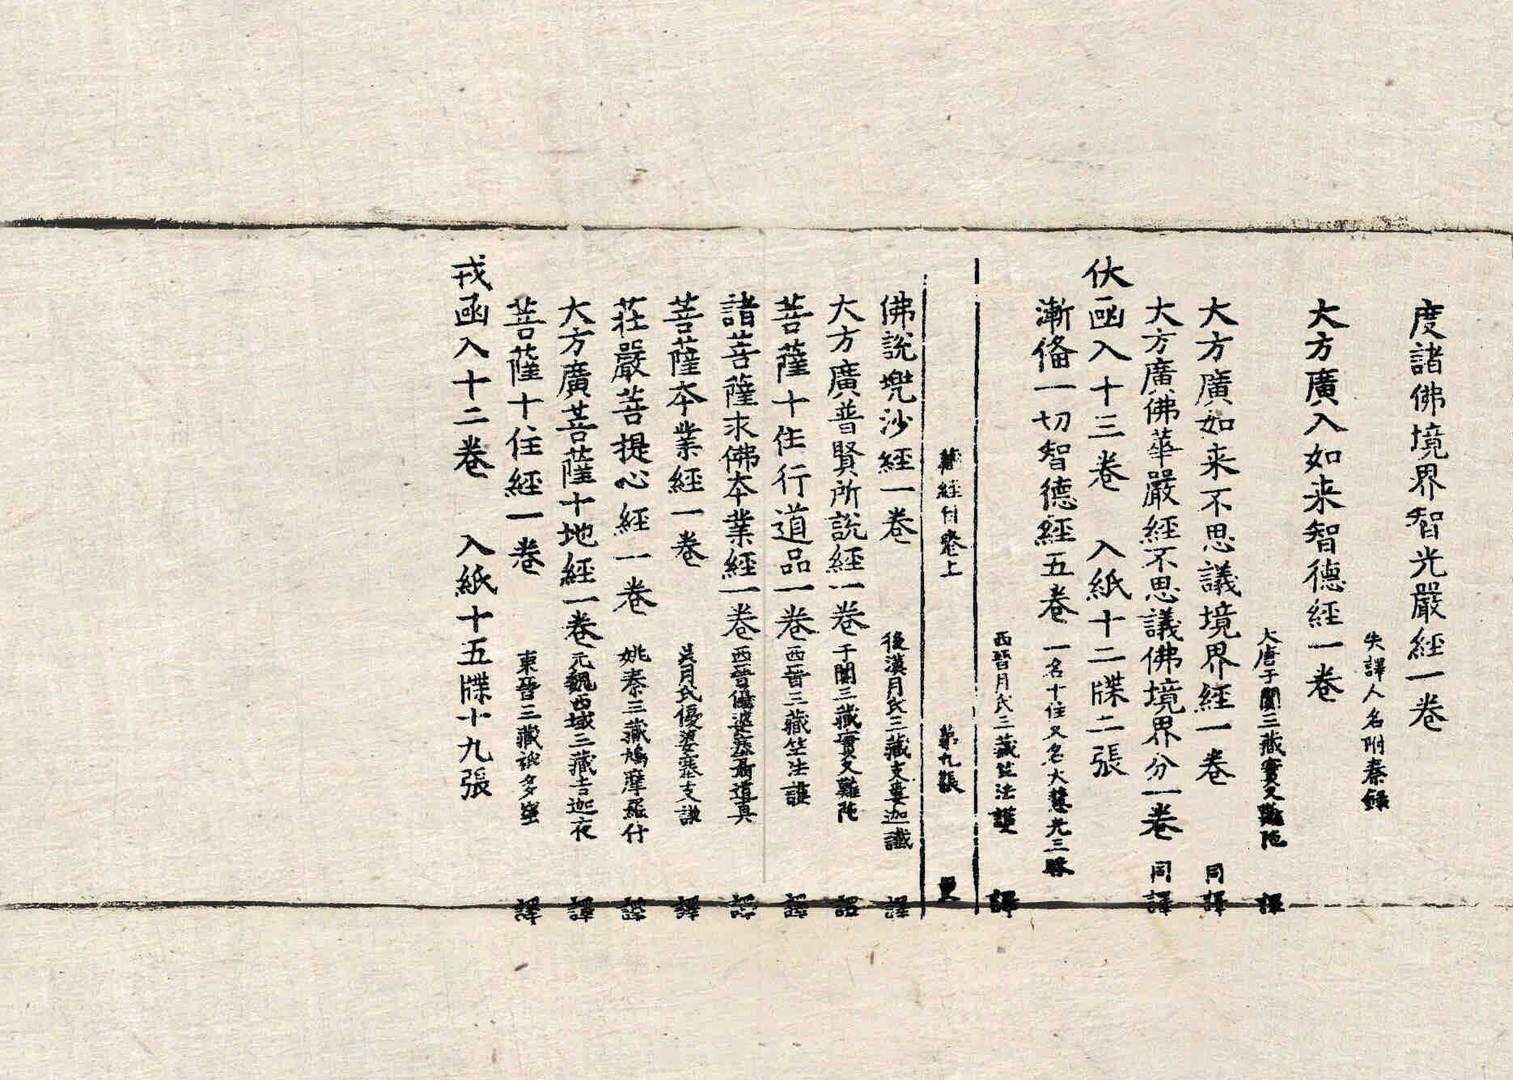 度諸佛境界智光嚴經一卷
失譯人名附秦錄
大方廣入如来智德經一卷
大唐于闐三藏實叉難陁 譯
大方廣如来不思議境界經一卷 同譯
大方廣佛華嚴經不思議佛境界分一卷 同譯
伏函入十三卷 入紙十二牒二張
漸俻一切智德經五卷 一名十住又名大慧光三昧
西晉月氏三藏竺法護 譯
經目卷上 第九張
佛說兠沙經一卷 後漢月氏三藏支婁迦讖 譯
大方廣普賢所說經一卷 于闐三藏實叉難陁 譯
菩薩十住行道品一卷 西晉三藏竺法護 譯
諸菩薩求佛夲業經一卷 西晉優婆塞聶道真 譯
菩薩夲業經一卷 吳月氏優婆塞支謙 譯
莊嚴菩提心經一卷 姚秦三藏鳩摩羅什 譯
大方廣菩薩十地經一卷 元魏西域三藏吉迦夜 譯
菩薩十住經一卷 東晉三藏祇多蜜 譯
戎函入十二卷 入紙十五牒十九張